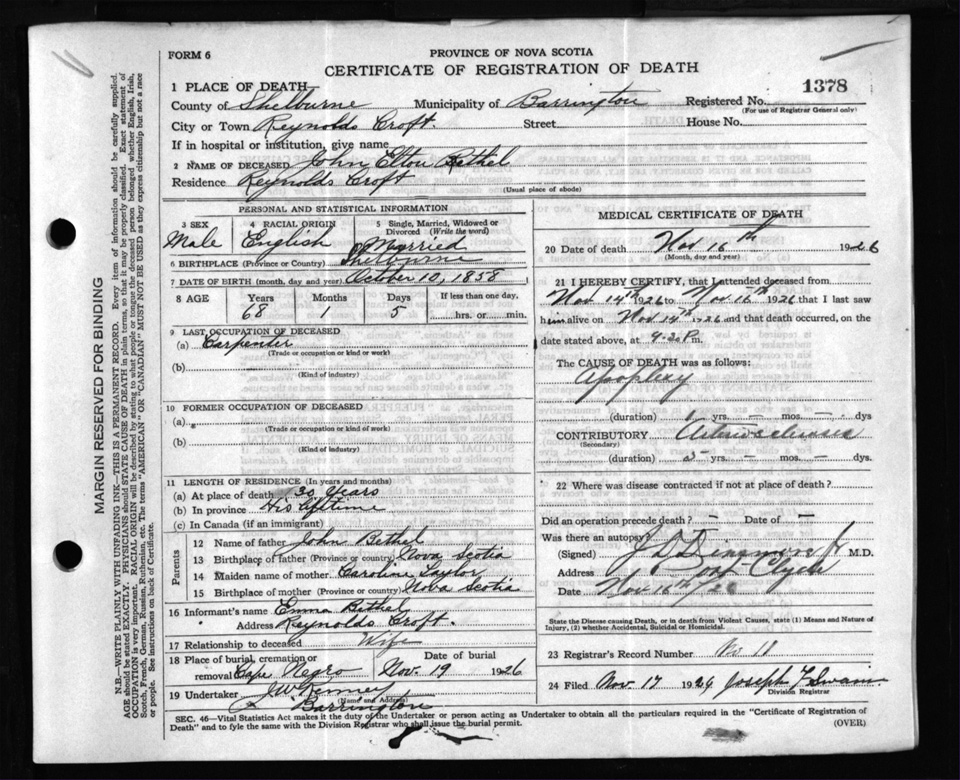 FORM 6
PROVINCE OF NOVA SCOTIA
CERTIFICATE OF REGISTRATION OF DEATH
1378
1 PLACE OF DEATH
County of Shelburne Municipality of Barrington Registered No.
(For use of Registrar General only)
City or Town Reynolds Croft. Street House No.
If in hospital or institution, give name
2 NAME OF DECEASED John Elton Bethel
Residence Reynolds Croft
(Usual place of abode)
PERSONAL AND STATISTICAL INFORMATION
3 SEX 4 RACIAL ORIGIN 5 Single, Married, Widowed or Divorced (Write the word)
Male English Married
6 BIRTHPLACE (Province or Country) Shelburne
7 DATE OF BIRTH (month, day and year) October 10, 1858
8 AGE Years Months Days If less than one day,
68 1 5 hrs. or min.
9 LAST OCCUPATION OF DECEASED
(a) Carpenter
(Trade or occupation or kind or work)
(b)
(Kind of industry)
10 FORMER OCCUPATION OF DECEASED
(a)
(Trade or occupation or kind of work)
(b)
(Kind of industry)
11 LENGTH OF RESIDENCE (In years and months)
(a) At place of death 30 Years
(b) In province His lifetime
(c) In Canada (if an immigrant)
Parents
12 Name of father John Bethel
13 Birthplace of father (Province or country) Nova Scotia
14 Maiden name of mother Caroline Taylor
15 Birthplace of mother (Province or country) Nova Scotia
16 Informant's name Emma Bethel
Address Reynolds Croft.
17 Relationship to deceased Wife
18 Place of burial, cremation or removal Cape Negro Date of burial Nov. 19 1926
19 Undertaker J W
(Name and Address)
Barrington
MEDICAL CERTIFICATE OF DEATH
20 Date of death Nov 16 th 1926
(Month, day and year)
21 I HEREBY CERTIFY, that I attended deceased from
Nov 14th 1926 to Nov 16th 1926 that I last saw
him alive on Nov 14th 1926 and that death occurred, on
date stated above, at 9.30 P.m.
The CAUSE OF DEATH was as follows:
Apoplexy
(duration) 1 yrs — mos. — dys
CONTRIBUTORY Arteriosclerosis
(Secondary)
(duration) yrs. — mos. — dys.
22 Where was disease contracted if not at place of death?
Did an operation precede death? — Date of —
Was there an autopsy?
(Signed) J D Densmore M.D.
Address Port Clyde
Date Nov 16th/26
State the Disease causing Death, or in death from Violent Causes, state (1) Means and Nature of Injury, (2) whether Accidental, Suicidal or Homicidal.
23 Registrar's Record Number No 11
24 Filed Nov. 17 1926 Joseph Swain
Division Registrar
SEC. 46—Vital Statistics Act makes it the duty of the Undertaker or person acting as Undertaker to obtain all the particulars required in the "Certificate of Registration of
Death" and to fyle the same with the Division Registrar who shall issue the burial permit.
(OVER)
MARGIN RESERVED FOR BINDING
N.B.—WRITE PLAINLY WITH UNFADING INK—THIS IS A PERMANENT RECORD. Every item of information should be carefully supplied.
AGE should be stated EXACTLY. PHYSICIANS should STATE CAUSE OF DEATH in plain terms, so that it may be properly classified. Exact statement of
OCCUPATION is very important. RACIAL ORIGIN will be described by stating to what people or tongue the deceased person belonged whether English, Irish,
Scotch, French, German, Russian, Ruthenian, etc. The terms "AMERICAN" OR "CANADIAN" MUST NOT BE USED as they express citizenship but not a race
or people. See instructions on back of Certificate.